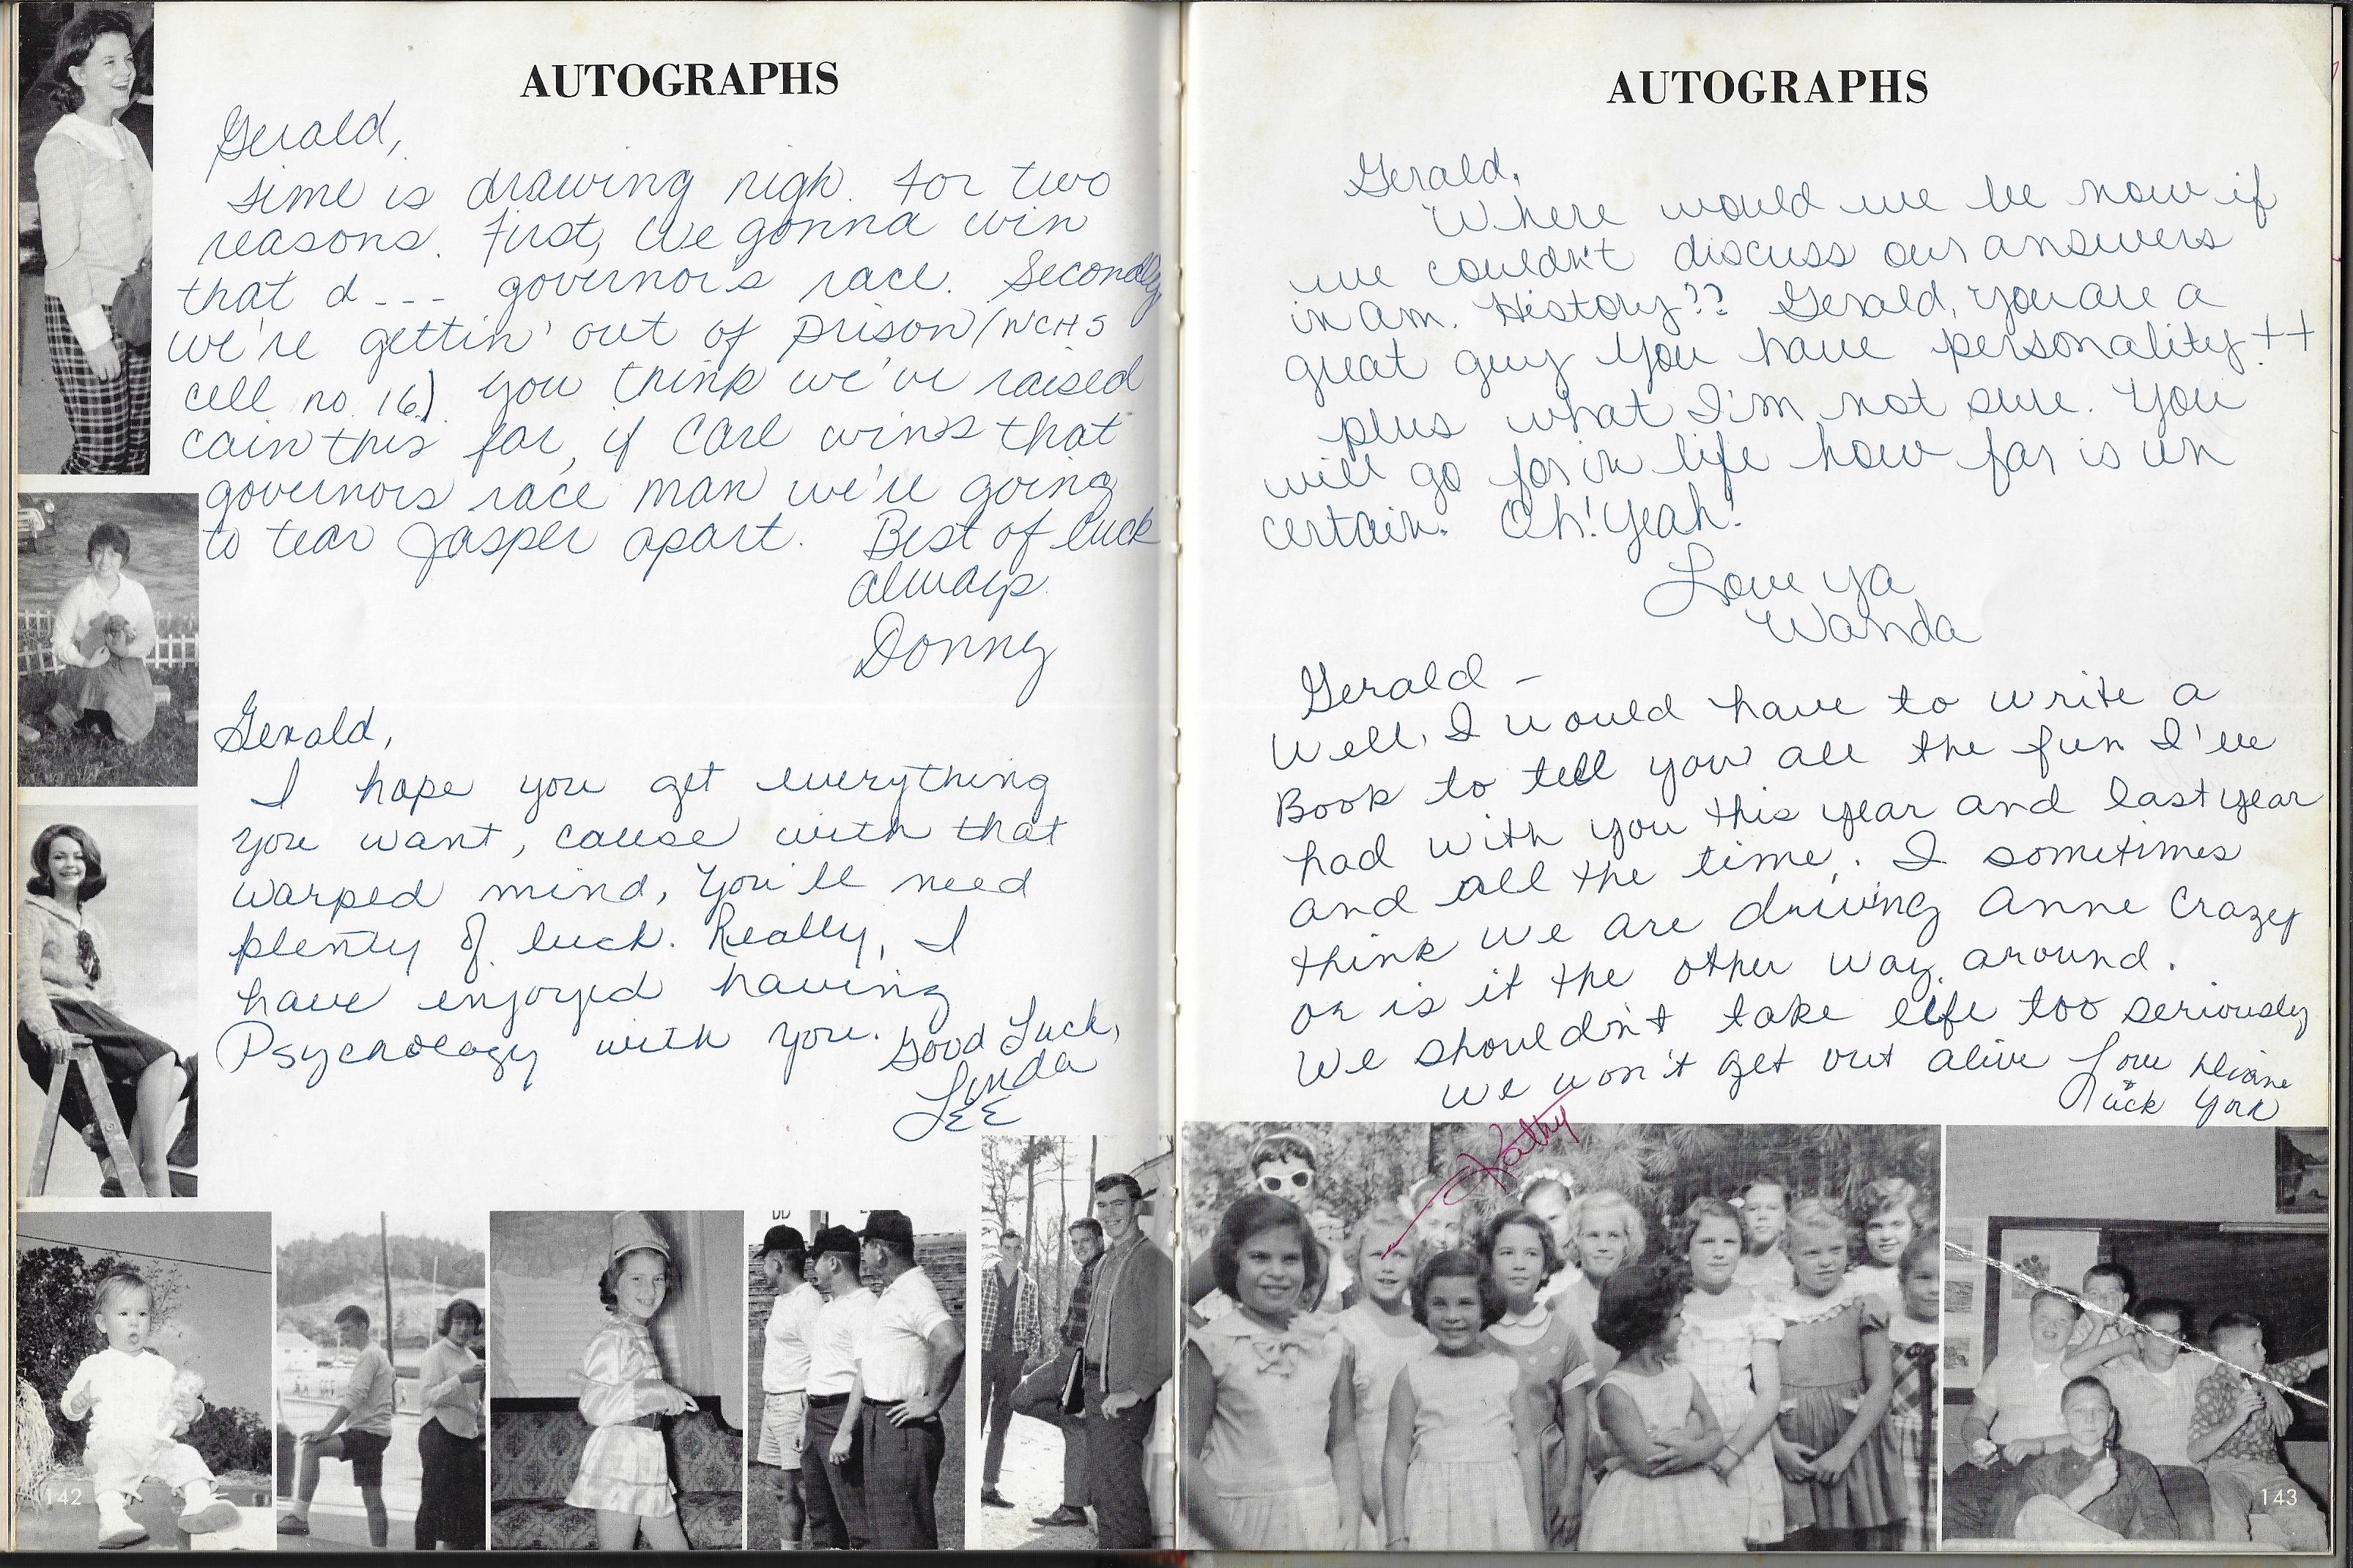 AUTOGRAPHS
Gerald,
Time is drawing nigh. For two
reasons. First, we gonna win
that d--- governors race. Secondly
we're gettin' out of prison (NCHS
cell no. 16). you think we've raised
cain this far, if Carl wins that
governors race man we're going
to tear Jasper apart. Best of luck
always
Donny
Gerald,
I hope you get everything
you want, cause with that
warped mind, you'll need
plenty of luck. Really, I
have enjoyed having
Psychology with you. Good Luck,
Linda
LEE
142
AUTOGRAPHS
Gerald,
Where would we be now if
we couldn't discuss our answers
in am. History?? Gerald, you are a
great guy you have personality ++
plus what I'm not sure. You
will go far in life how far is un
certain. Oh! Yeah!
Love ya
Wanda
Gerald -
Well, I would have to write a
Book to tell you all the fun I've
had with you this year and last year
and all the time. I sometimes
think we are driving Anne Crazy
or is it the other way around.
We shouldn't take life too seriously
we won't get out alive Love Diane
York
Kathy
143